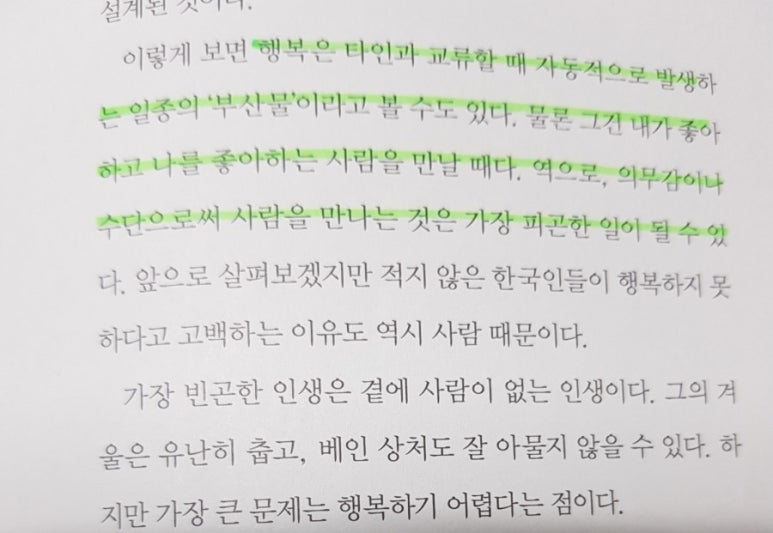 설계된 것이다.
이렇게 보면 행복은 타인과 교류할 때 자동적으로 발생하
는 일종의 '부산물'이라고 볼 수도 있다. 물론 그건 내가 좋아
하고 나를 좋아하는 사람을 만날 때다. 역으로, 의무감이나
수단으로써 사람을 만나는 것은 가장 피곤한 일이 될 수 있
다. 앞으로 살펴보겠지만 적지 않은 한국인들이 행복하지 못
하다고 고백하는 이유도 역시 사람 때문이다.
가장 빈곤한 인생은 곁에 사람이 없는 인생이다. 그의 겨
울은 유난히 춥고, 베인 상처도 잘 아물지 않을 수 있다. 하
지만 가장 큰 문제는 행복하기 어렵다는 점이다.